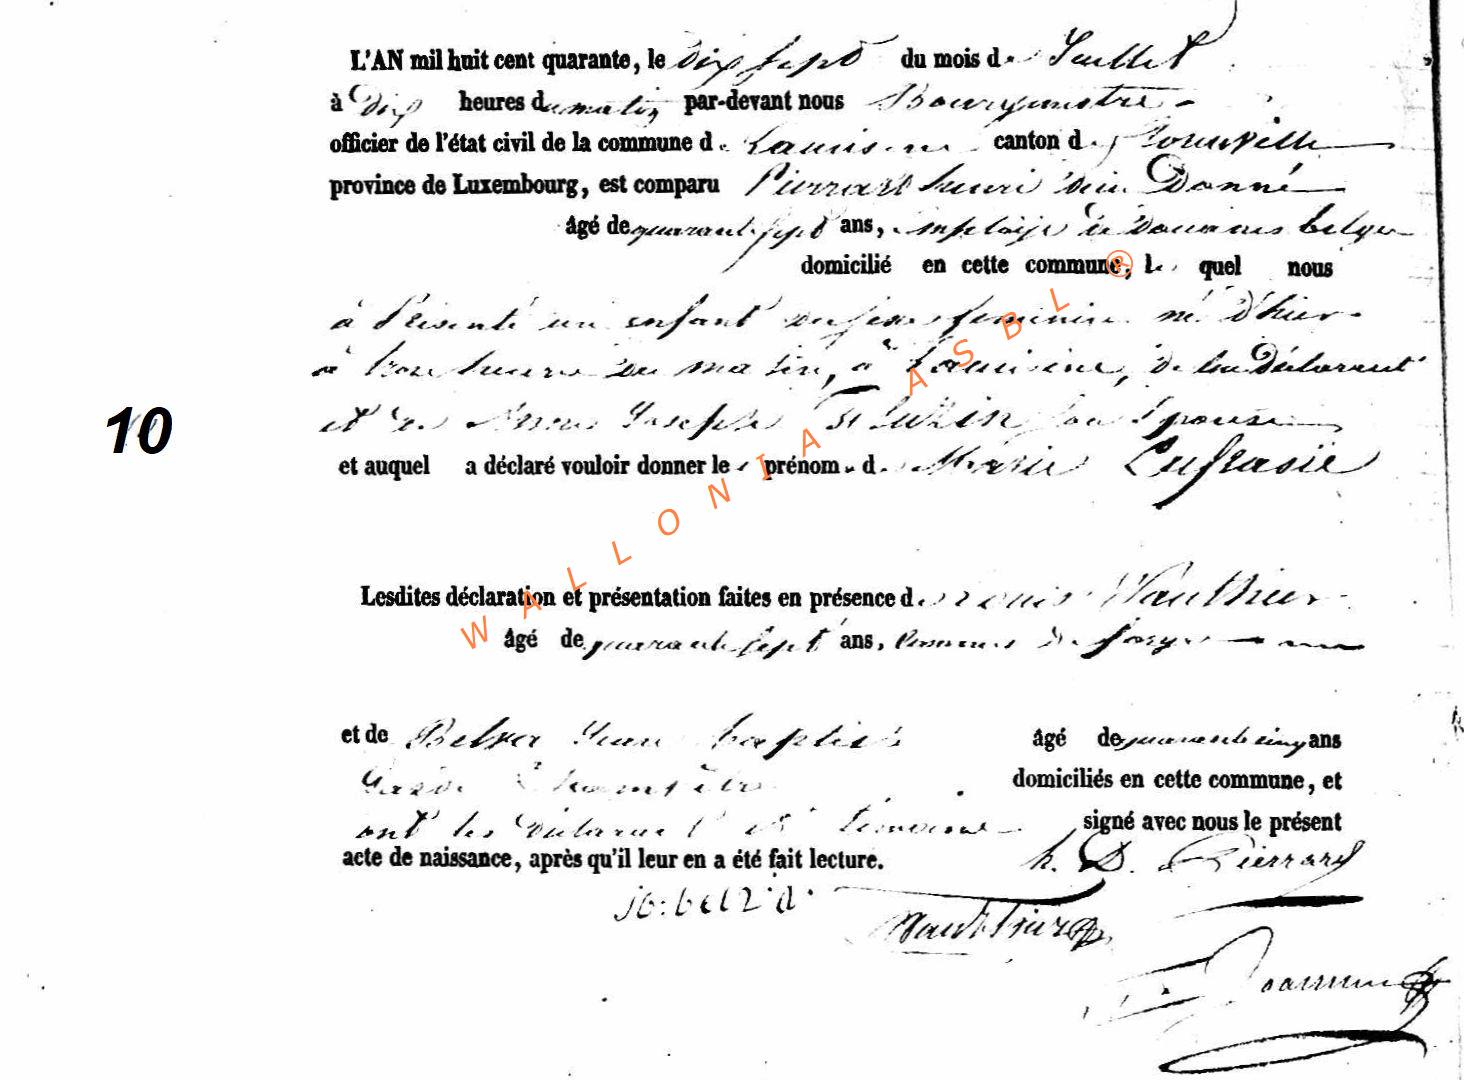 L'AN mil huit cent quarante, le dix sept du mois de Juillet
à dix heures du matin par-devant nous Bourgmestre
officier de l'état civil de la commune de canton de
province de Luxembourg, est comparu Pierrard henri Dieu Donné
âgé de quarante sept ans, employé de Douanes belges
domicilié en cette commune, le quel nous
à Présenté un enfant du sexe feminin né d'hier
à trois heures du matin, à de lui Déclarant
et de Joseph son Epouse
et auquel a déclaré vouloir donner les prénoms de Marie Eufrasie
10
Lesdites déclaration et présentation faites en présence de Louis Wauthier
âgé de quarante sept ans, commis de forges
et de Jean baptiste âgé de quarante cinq ans
Garde Champêtre domiciliés en cette commune, et
ont les Déclarant et témoins signé avec nous le présent
acte de naissance, après qu'il leur en a été fait lecture. h. D. Pierrard
Wauthier
WALLONIA ASBL ®